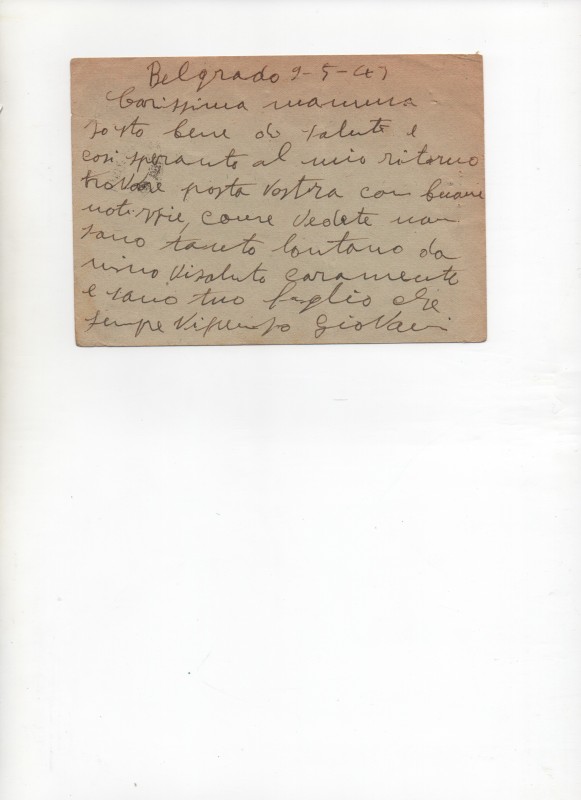 Belgrado 9-5-43
Carissima mamma
sosto bene di salute e
cosi speranto al mio ritorno
trovare posta vostra con buone
notizzie, come vedete non
sono tanto lontano da
visaluto caramente
e sono tuo figlio che
sempre vi penso Giovani